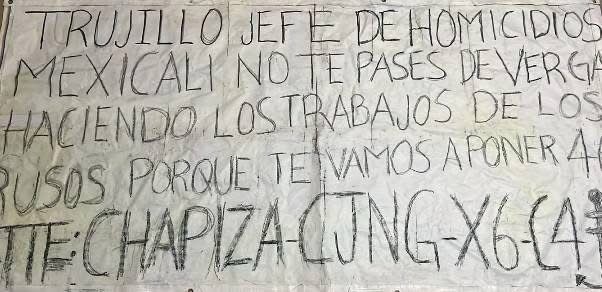 TRUJILLO JEFE DE HOMICIDIOS
MEXICALI NO TE PASES DE VERGA
HACIENDO LOS TRABAJOS DE LOS
RUSOS PORQUE TE VAMOS A PONER 4
ATTE: CHAPIZA-CJNG-X6-C4